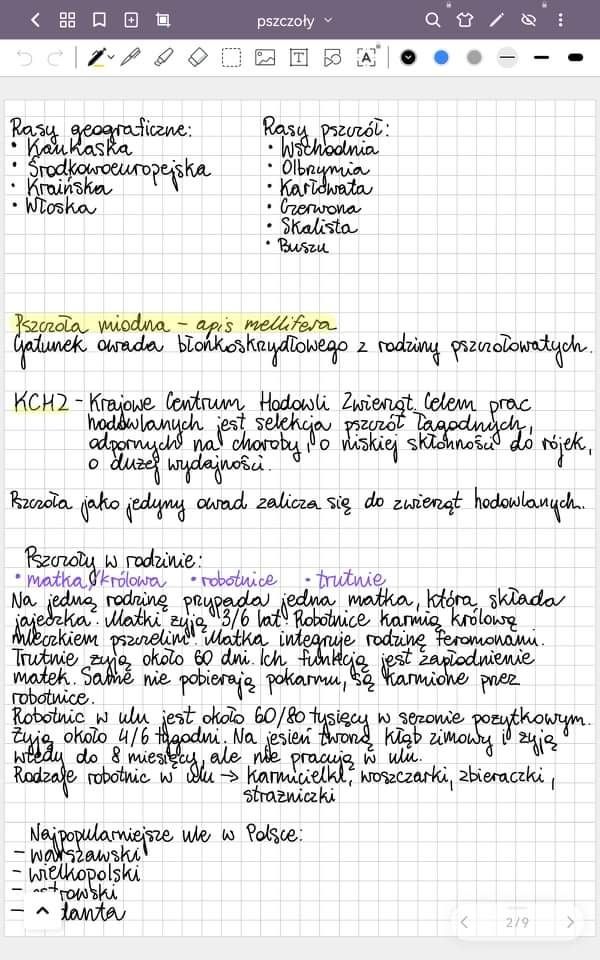 pszczoły
Rasy geograficzne:
• Kaukaska
• Środkowoeuropejska
• Kraińska
• Włoska
Rasy pszczół:
• Wschodnia
• Olbrzymia
• Karłowata
• Czerwona
• Skalista
• Buszu
Pszczoła miodna - apis mellifera
Gatunek owada błonkoskrzydłowego z rodziny pszczołowatych.
KCHZ - Krajowe Centrum Hodowli Zwierząt. Celem prac
hodowlanych jest selekcja pszczół łagodnych,
odpornych na choroby, o niskiej skłonności do rójek,
o dużej wydajności.
Pszczoła jako jedyny owad zalicza się do zwierząt hodowlanych.
Pszczoły w rodzinie:
• matka/królowa • robotnice • trutnie
Na jedną rodzinę przypada jedna matka, która składa
jajeczka. Matki żyją 3/6 lat. Robotnice karmią królową
mleczkiem pszczelim. Matka integruje rodzinę feromonami.
Trutnie żyją około 60 dni. Ich funkcją jest zapłodnienie
matek. Same nie pobierają pokarmu, są karmione przez
robotnice.
Robotnic w ulu jest około 60/80 tysięcy w sezonie pożytkowym.
Żyją około 4/6 tygodni. Na jesień tworzą kłąb zimowy i żyją
wtedy do 8 miesięcy, ale nie pracują w ulu.
Rodzaje robotnic w ulu → karmicielki, woszczarki, zbieraczki,
strażniczki
Najpopularniejsze ule w Polsce:
- warszawski
- wielkopolski
- ostrowski
- danta
2/9